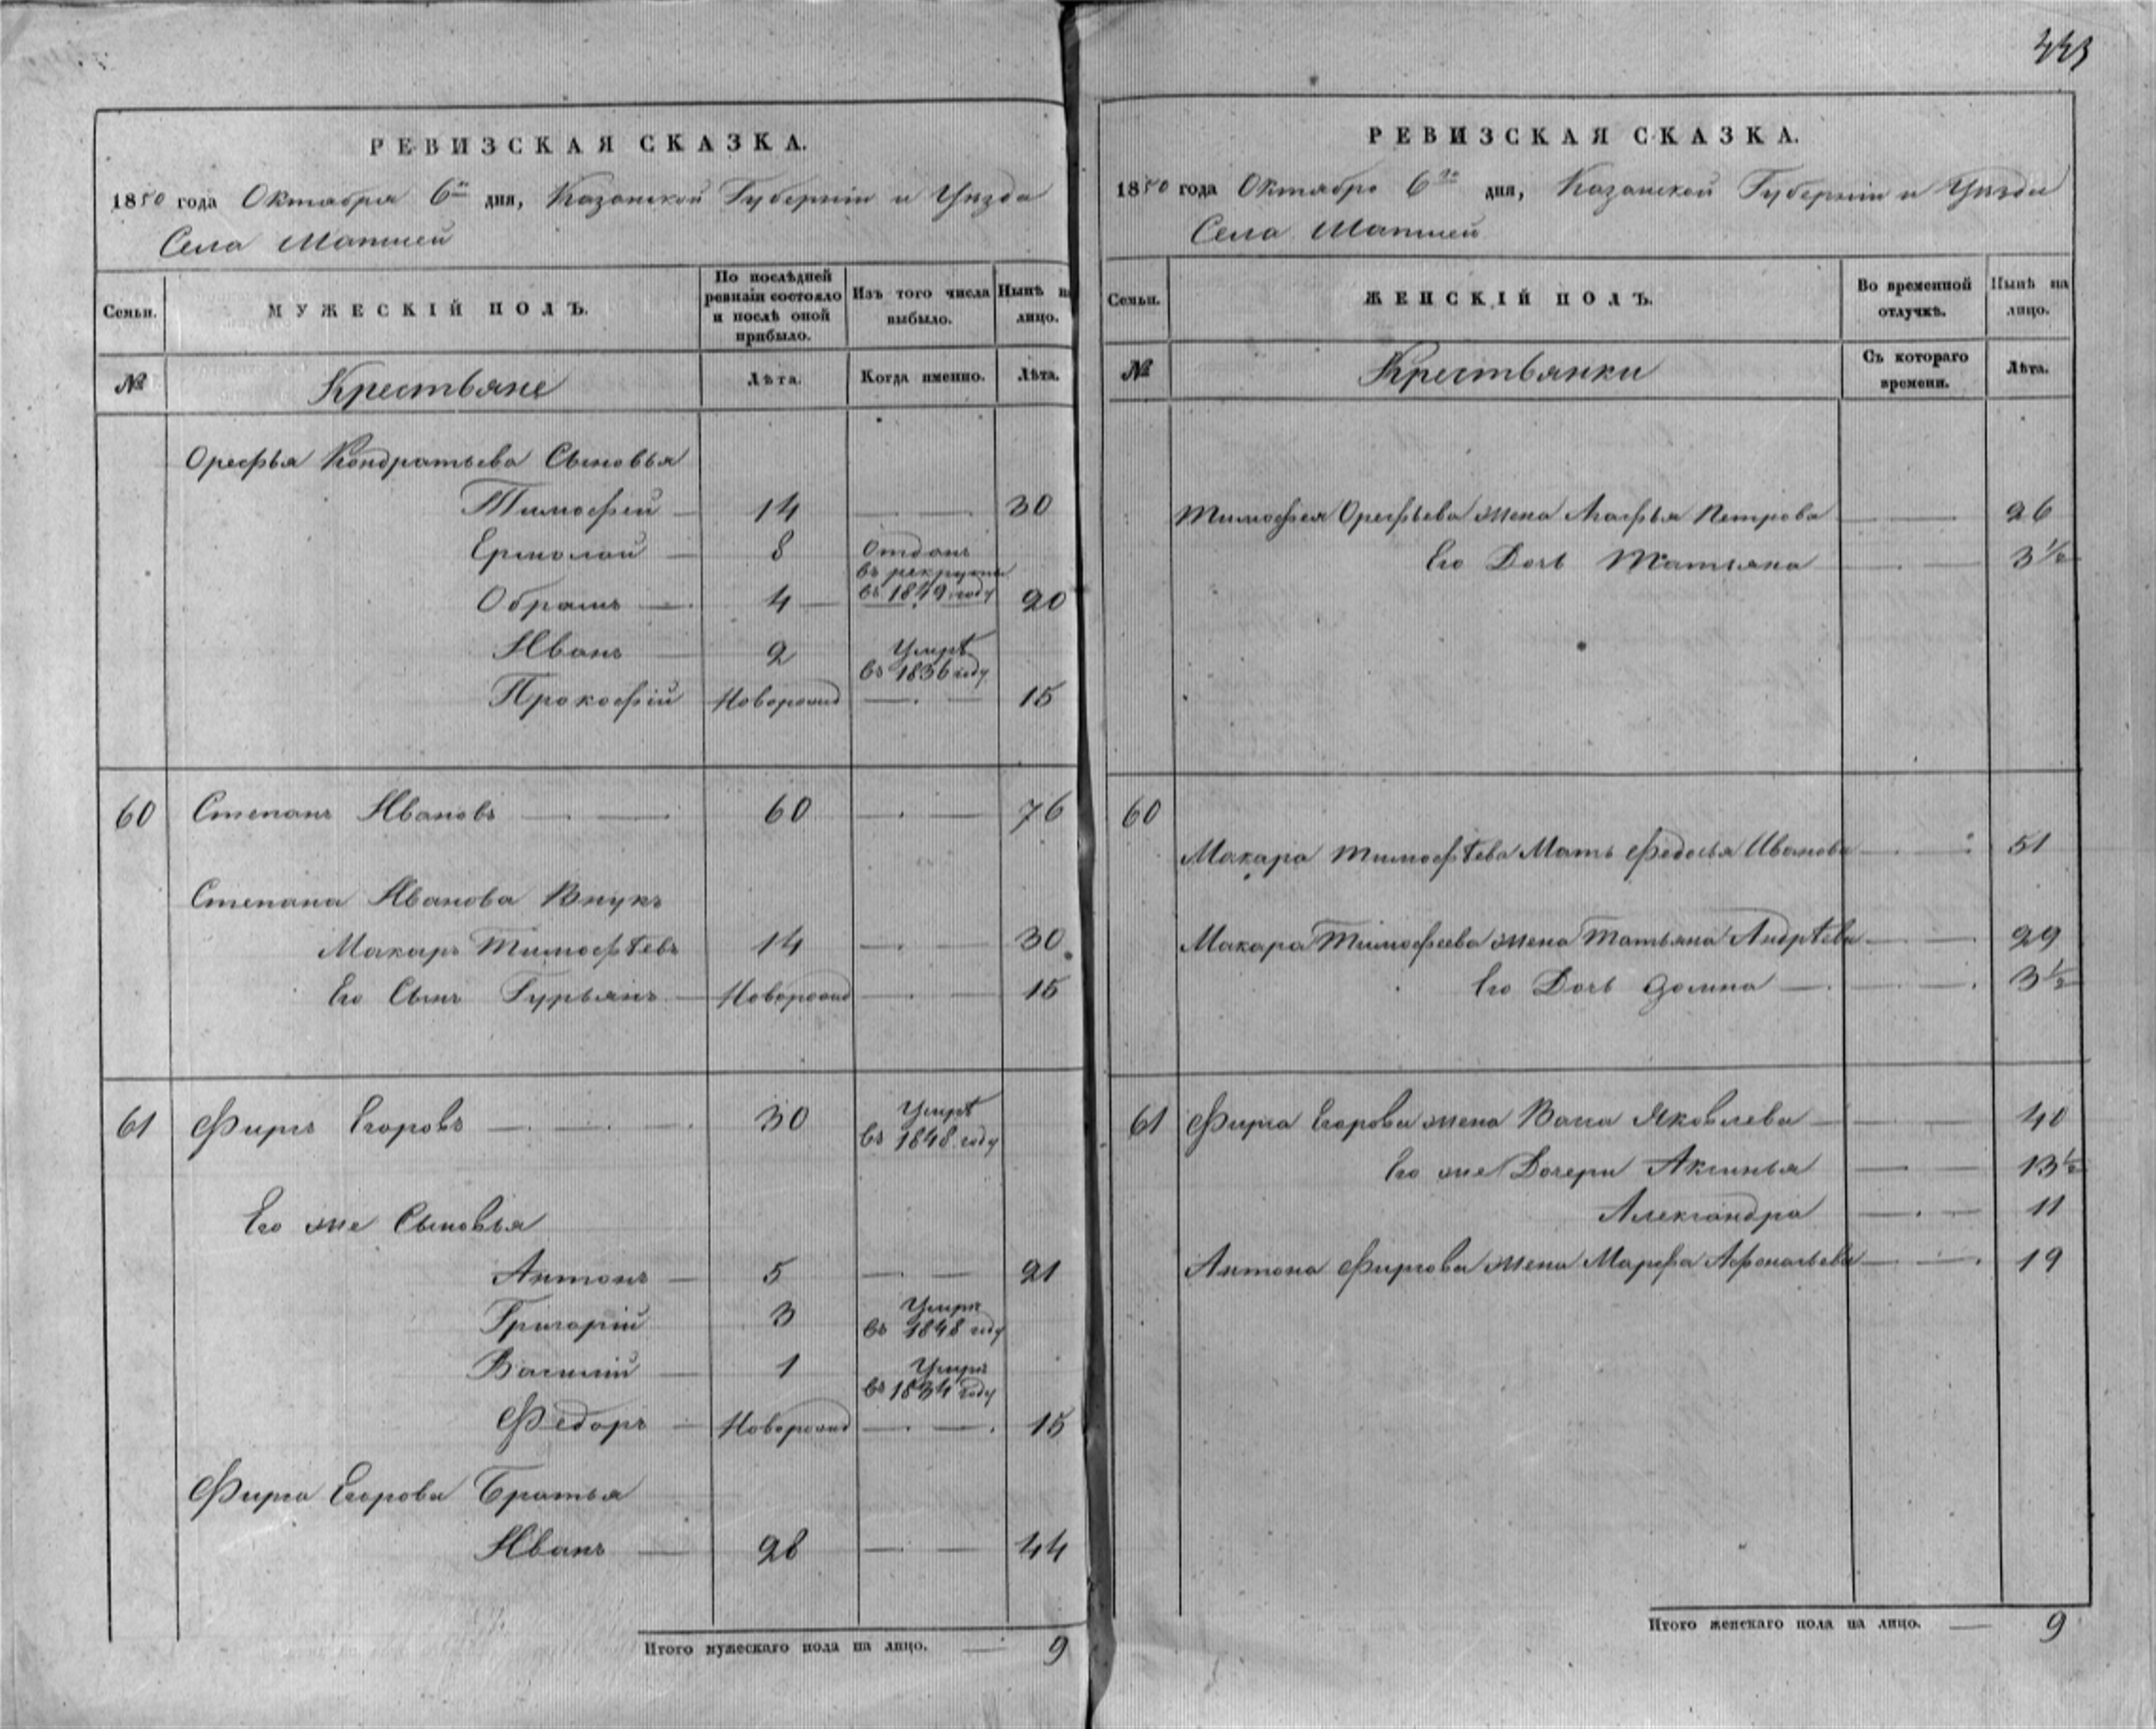 РЕВИЗСКАЯ СКАЗКА.
1850 года Октября 6го дня, Казанской Губерніи и Уѣзда
Села Шапшей
Семьи.
МУЖЕСКІЙ ПОЛЪ.
По послѣдней ревизіи состояло и послѣ оной прибыло.
Изъ того числа выбыло.
Нынѣ на лицо.
№
Крестьяне
Лѣта.
Когда именно.
Лѣта.
Орефья Кондратьева Сыновья
Тимофей 14 30
Ермолай 8 Отданъ въ рекруты въ 1849 году
Обрамъ 4 20
Иванъ 2 Умрѣ въ 1836 году
Прокофій Новорожд 15
60 Степанъ Ивановъ 60 76
Степана Иванова Внукъ
Макаръ Тимофѣевъ 14 30
Его Сынъ Гурьянъ Новорожд 15
61 Фирсъ Егоровъ 30 Умрѣ въ 1848 году
Его же Сыновья
Антонъ 5 21
Григорій 3 Умръ въ 1848 году
Василій 1 Умръ въ 1834 году
Федоръ Новорожд 15
Фирса Егорова Братья
Иванъ 28 44
Итого мужескаго пола на лицо. 9
РЕВИЗСКАЯ СКАЗКА.
1850 года Октября 6го дня, Казанской Губерніи и Уѣзда
Села Шапшей
Семьи.
ЖЕНСКІЙ ПОЛЪ.
Во временной отлучкѣ.
Нынѣ на лицо.
№
Крестьянки
Съ котораго времени.
Лѣта.
Тимофея Орефьева жена Агафья Петрова 26
Его Дочь Татьяна 3½
60
Макара Тимофѣева Мать Федосья Иванова 51
Макара Тимофеева жена Татьяна Андрѣева 29
Его Дочь Домна 3½
61 Фирса Егорова жена Васса Яковлева 40
Его же Дочери Аксинья 13½
Александра 11
Антона Фирсова жена Марфа Афонасьева 19
Итого женскаго пола на лицо. 9